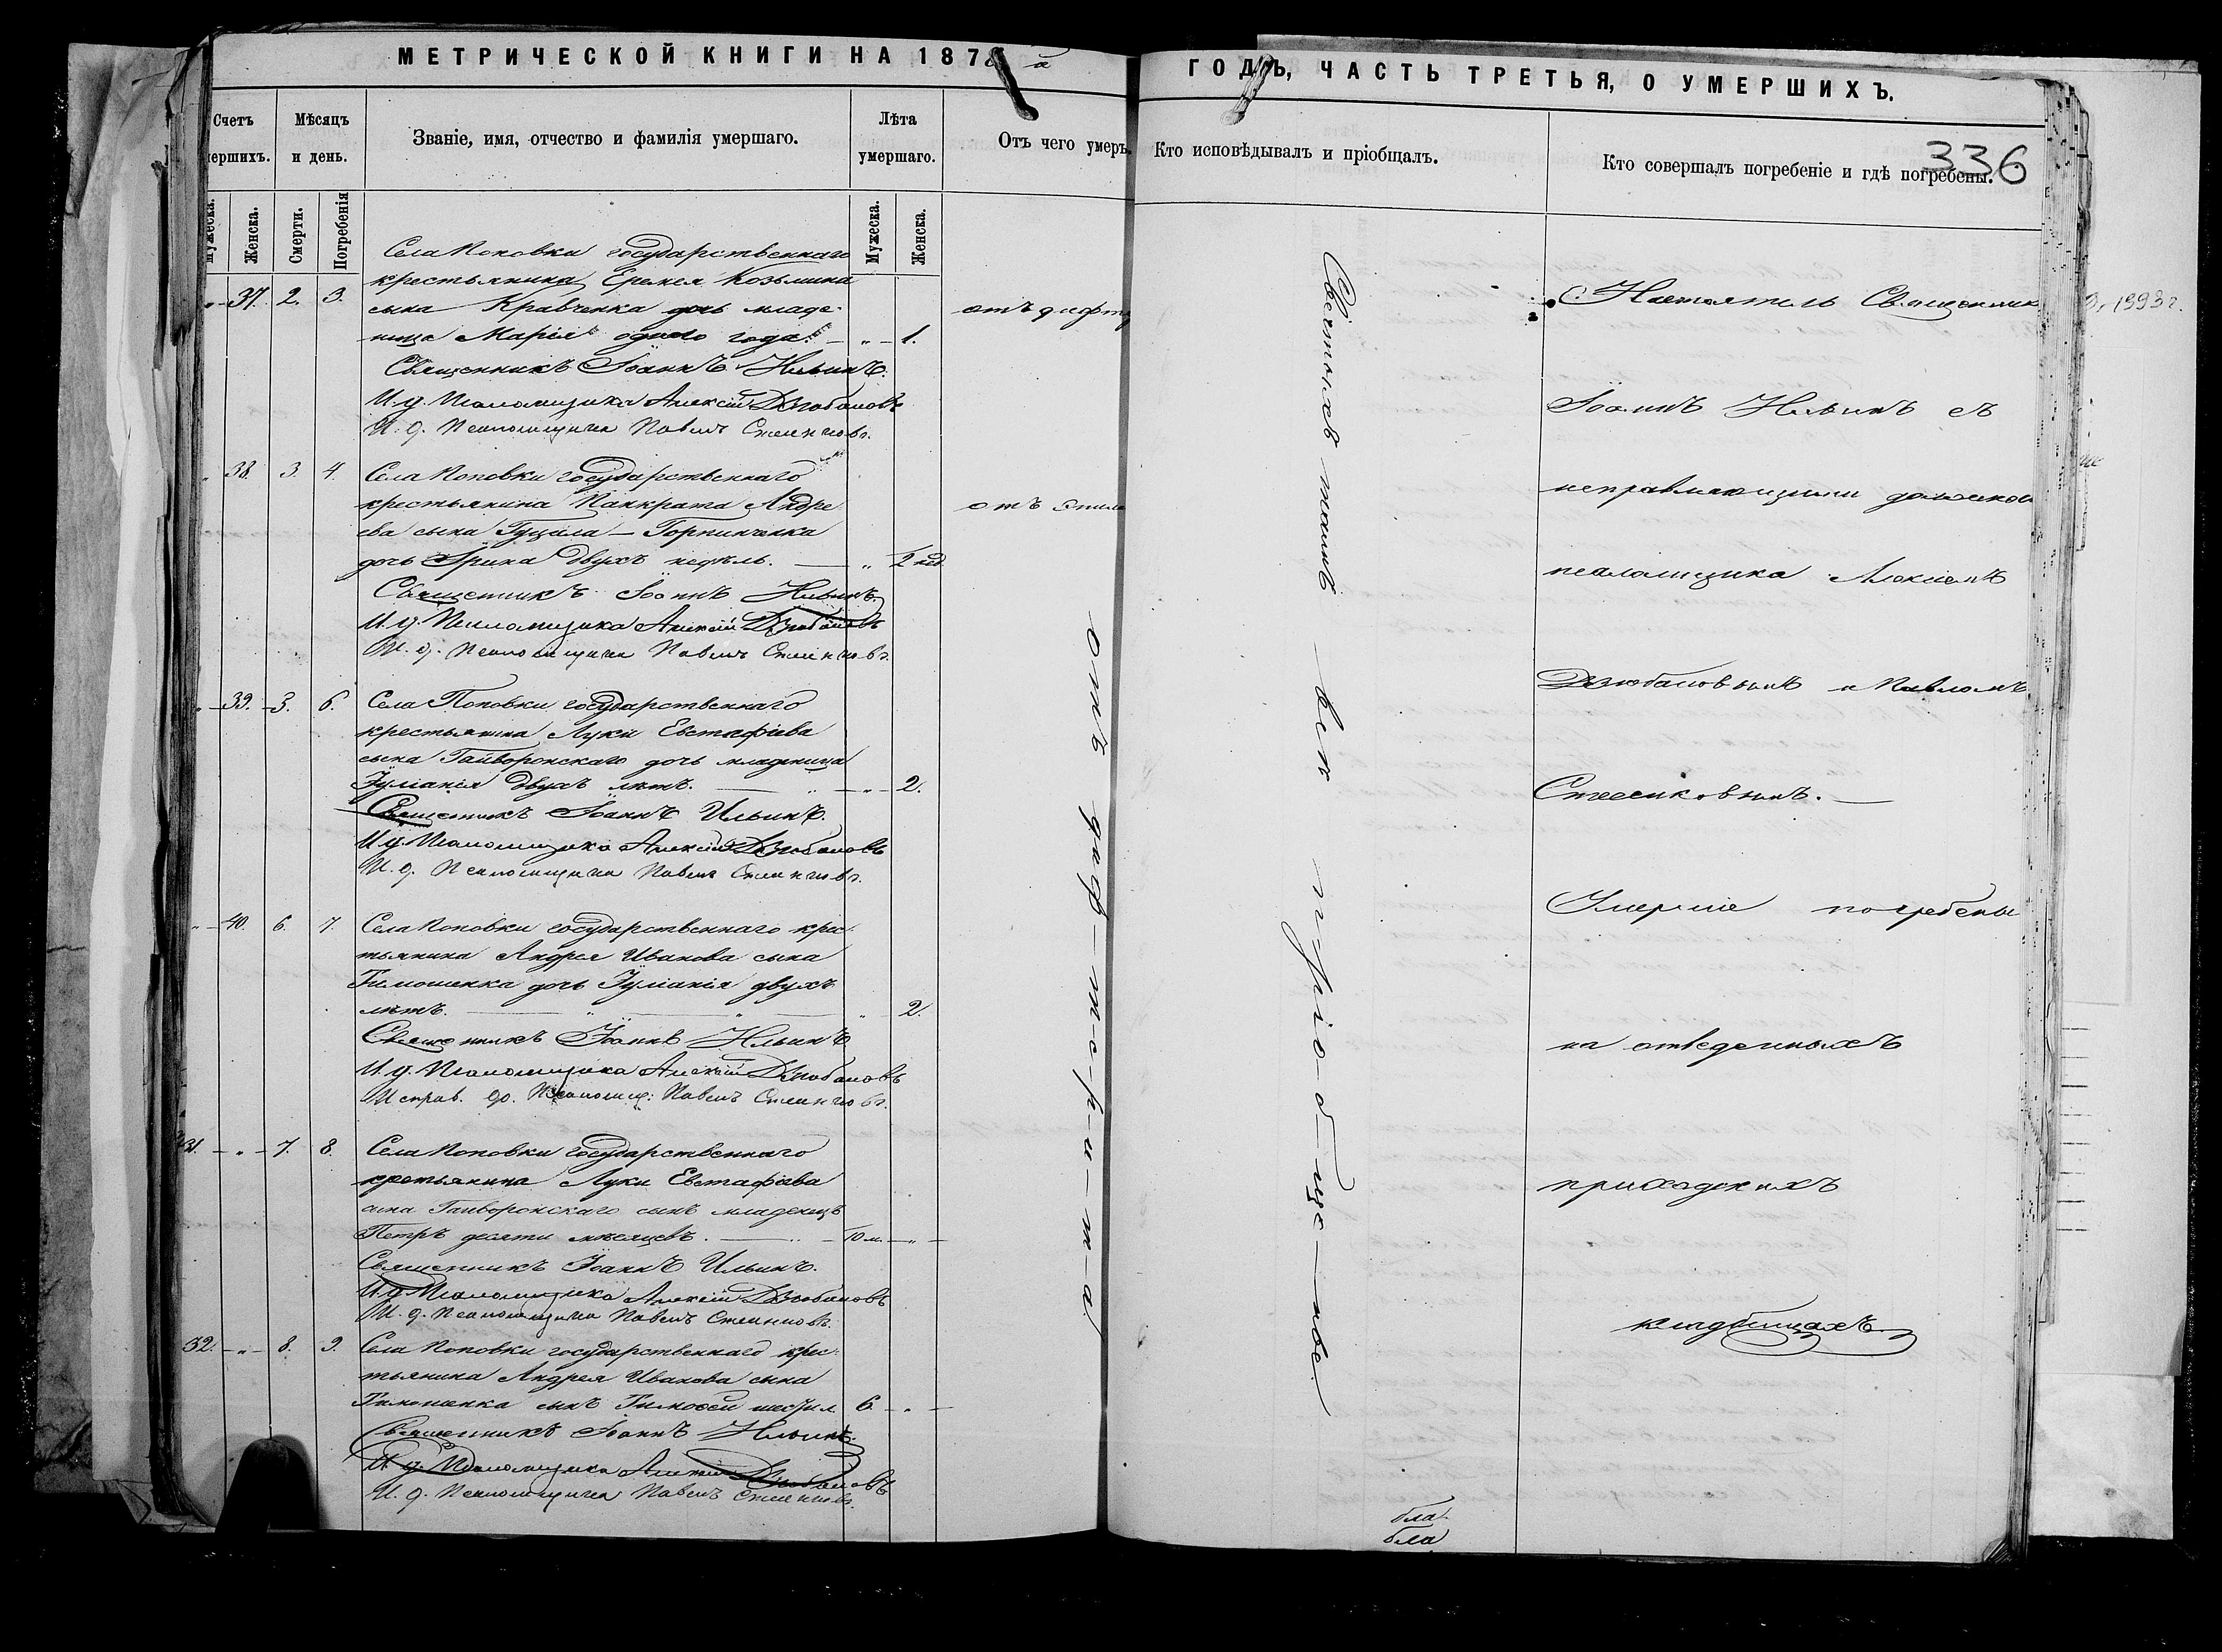 МЕТРИЧЕСКОЙ КНИГИ НА 187
ГОДЪ, ЧАСТЬ ТРЕТЬЯ, О УМЕРШИХЪ.
336
Счетъ
мершихъ.
Мѣсяцъ
и день.
Званіе, имя, отчество и фамилія умершаго.
Лѣта
умершаго.
Отъ чего умеръ.
Кто исповѣдывалъ и пріобщалъ.
Кто совершалъ погребеніе и гдѣ погребены.
Мужеска.
Женска.
Смерти.
Погребенія
Мужеска.
Женска.
Села Поповки государственнаго
крестьянина Еремея Козьмина
37. 2. 3. сына Кравченка дочь младе-
ница Марія одного года. 1.
Священникъ Іоаннъ Ильинъ.
И. д. Псаломщика Алексій Дзюбановъ
И. д. Псаломщика Павелъ
38. 3. 4. Села Поповки государственнаго
крестьянина Панкрата Андре
ева сына Гуцала - Горпинченка
дочь Ирина двухъ недѣль. 2 нед.
Священникъ Іоаннъ Ильинъ.
И. д. Псаломщика Алексій Дзюбановъ
И. д. Псаломщика Павелъ
39. 3. 6. Села Поповки государственнаго
крестьянина Луки Евстафіева
сына Гайворонскаго дочь младеница
Іуліанія двухъ лѣтъ. 2.
Священникъ Іоаннъ Ильинъ.
И. д. Псаломщика Алексій Дзюбановъ
И. д. Псаломщика Павелъ
40. 6. 7. Села Поповки государственнаго крес-
тьянина Андрея Иванова сына
Тимошенка дочь Іуліанія двухъ
лѣтъ. 2.
Священникъ Іоаннъ Ильинъ
И. д. Псаломщика Алексій Дзюбановъ
Исправ. до. Псаломщ: Павелъ
31. 7. 8. Села Поповки государственнаго
крестьянина Луки Евстафіева
сына Гайворонскаго сынъ младенецъ
Петръ десяти мѣсяцевъ. 10 м.
Священникъ Іоаннъ Ильинъ.
И. д. Псаломщика Алексій Дзюбановъ
И. д. Псаломщика Павелъ
32. 8. 9. Села Поповки государственнаго крес-
тьянина Андрея Иванова сына
Тимошенка сынъ Тимофей шести л. 6.
Священникъ Іоаннъ Ильинъ.
И. д. Псаломщика Алексій Дзюбановъ
И. д. Псаломщика Павелъ
отъ дифт
отъ
отъ диф-те-ри-т-а
Святыхъ таинъ не пріобще-ны
Настоятель Священник
Іоаннъ Ильинъ съ
исправляющими должнос
псаломщика Алексіемъ
Дзюбановымъ и Павломъ
Умершіе погребены
на отведенныхъ
приходскихъ
кладбищахъ.
бла-
бла
1993 г.